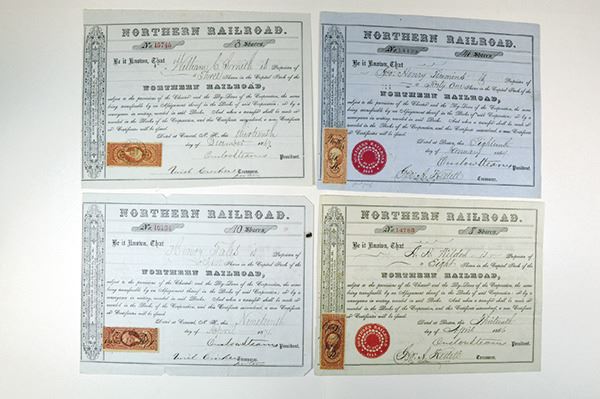 NORTHERN RAILROAD.
No. 15745 3 Shares.
Be it Known, That William C. Smith is Proprietor of
Three Shares in the Capital Stock of the
NORTHERN RAILROAD,
subject to the provisions of the Charter and the By-Laws of the Corporation, the same
being transferable by an Assignment thereof in the Books of said Corporation, or by a
conveyance in writing recorded in said Books. And when a transfer shall be made or
recorded in the Books of the Corporation, and this Certificate surrendered, a new
Certificate will be issued.
Dated at Concord, N. H., the thirteenth
day of December 18
Onslow Stearns President.
Treasurer.
NORTHERN RAILROAD.
No. Shares.
Be it Known, That Henry is Proprietor of
Sixty One Shares in the Capital Stock of the
NORTHERN RAILROAD,
subject to the provisions of the Charter and the By-Laws of the Corporation, the same
being transferable by an Assignment thereof in the Books of said Corporation, or by a
conveyance in writing recorded in said Books. And when a transfer shall be made or
recorded in the Books of the Corporation, and this Certificate surrendered, a new
Certificate will be issued.
Dated at Boston, the Eighteenth
day of January 186
Onslow Stearns President.
Treasurer.
NORTHERN RAILROAD.
No. 10 Shares.
Be it Known, That Henry is Proprietor of
Shares in the Capital Stock of the
NORTHERN RAILROAD,
subject to the provisions of the Charter and the By-Laws of the Corporation, the same
being transferable by an Assignment thereof in the Books of said Corporation, or by a
conveyance in writing recorded in said Books. And when a transfer shall be made or
recorded in the Books of the Corporation, and this Certificate surrendered, a new
Certificate will be issued.
Dated at Concord, N. H., the Nineteenth
day of April 18
Onslow Stearns President.
Treasurer.
NORTHERN RAILROAD.
No. 14763 8 Shares.
Be it Known, That is Proprietor of
Eight Shares in the Capital Stock of the
NORTHERN RAILROAD,
subject to the provisions of the Charter and the By-Laws of the Corporation, the same
being transferable by an Assignment thereof in the Books of said Corporation, or by a
conveyance in writing recorded in said Books. And when a transfer shall be made or
recorded in the Books of the Corporation, and this Certificate surrendered, a new
Certificate will be issued.
Dated at Boston, the Thirteenth
day of April 186
Onslow Stearns President.
Treasurer.